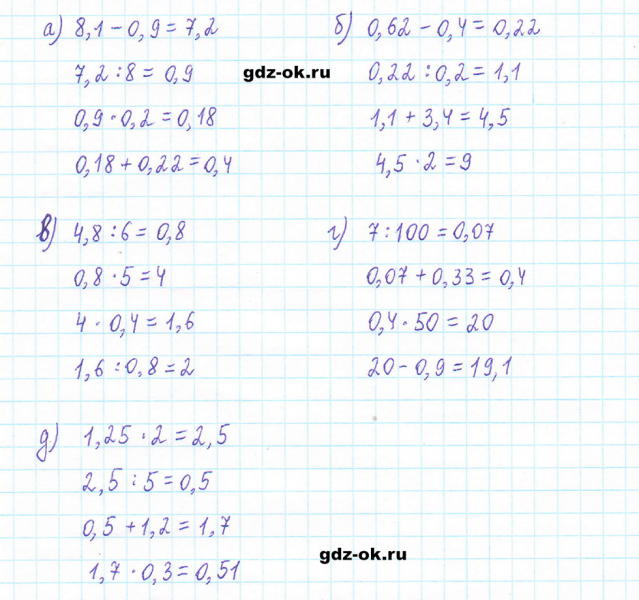 а) 8,1 - 0,9 = 7,2
7,2 : 8 = 0,9
0,9 · 0,2 = 0,18
0,18 + 0,22 = 0,4
б) 0,62 - 0,4 = 0,22
0,22 : 0,2 = 1,1
1,1 + 3,4 = 4,5
4,5 · 2 = 9
gdz-ok.ru
в) 4,8 : 6 = 0,8
0,8 · 5 = 4
4 · 0,4 = 1,6
1,6 : 0,8 = 2
г) 7 : 100 = 0,07
0,07 + 0,33 = 0,4
0,4 · 50 = 20
20 - 0,9 = 19,1
д) 1,25 · 2 = 2,5
2,5 : 5 = 0,5
0,5 + 1,2 = 1,7
1,7 · 0,3 = 0,51
gdz-ok.ru